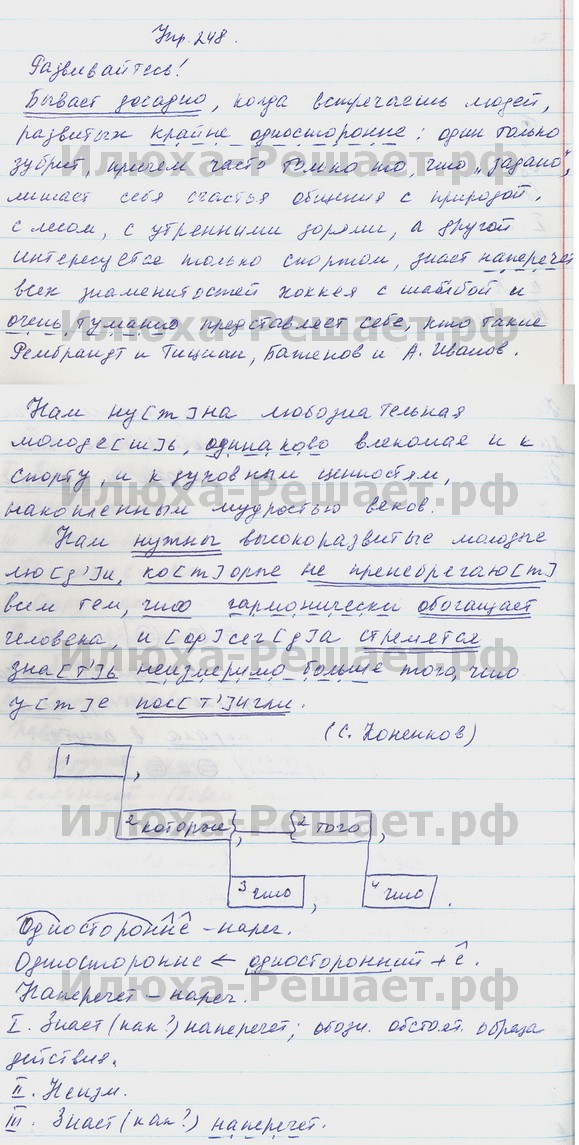 Упр. 248.
Развивайтесь!
Бывает досадно, когда встречаешь людей,
развитых крайне односторонне: один только
зубрит, причем часто только то, что „задано",
лишает себя счастья общения с природой,
с лесом, с утренними зорями, а другой
интересуется только спортом, знает наперечет
всех знаменитостей хоккея с шайбой и
очень туманно представляет себе, кто такие
Рембрандт и Тициан, Баженов и А. Иванов.
Нам ну[ж]на любознательная
молоде[ш]ь, одинаково влекомая и к
спорту, и к духовным ценностям,
накопленным мудростью веков.
Нам нужны высокоразвитые молодые
лю[д']и, ко[т]орые не пренебрегаю[т]
всем тем, что гармонически обогащает
человека, и [ф]сег[д]а стремятся
зна[т']ь неизмеримо больше того, что
у[ж]е пос[т']игли.
(С. Коненков)
1 ,
2 которые , 2 того ,
3 что , 4 что .
Односторонне – нареч.
Односторонне ← односторонний + е.
Наперечет – нареч.
I. Знает (как?) наперечет; обозн. обстоят. образа
действия.
II. Неизм.
III. Знает (как?) наперечет.
Илюха-Решает.рф
Илюха-Решает.рф
Илюха-Решает.рф
Илюха-Решает.рф
Илюха-Решает.рф
Илюха-Решает.рф
Илюха-Решает.рф